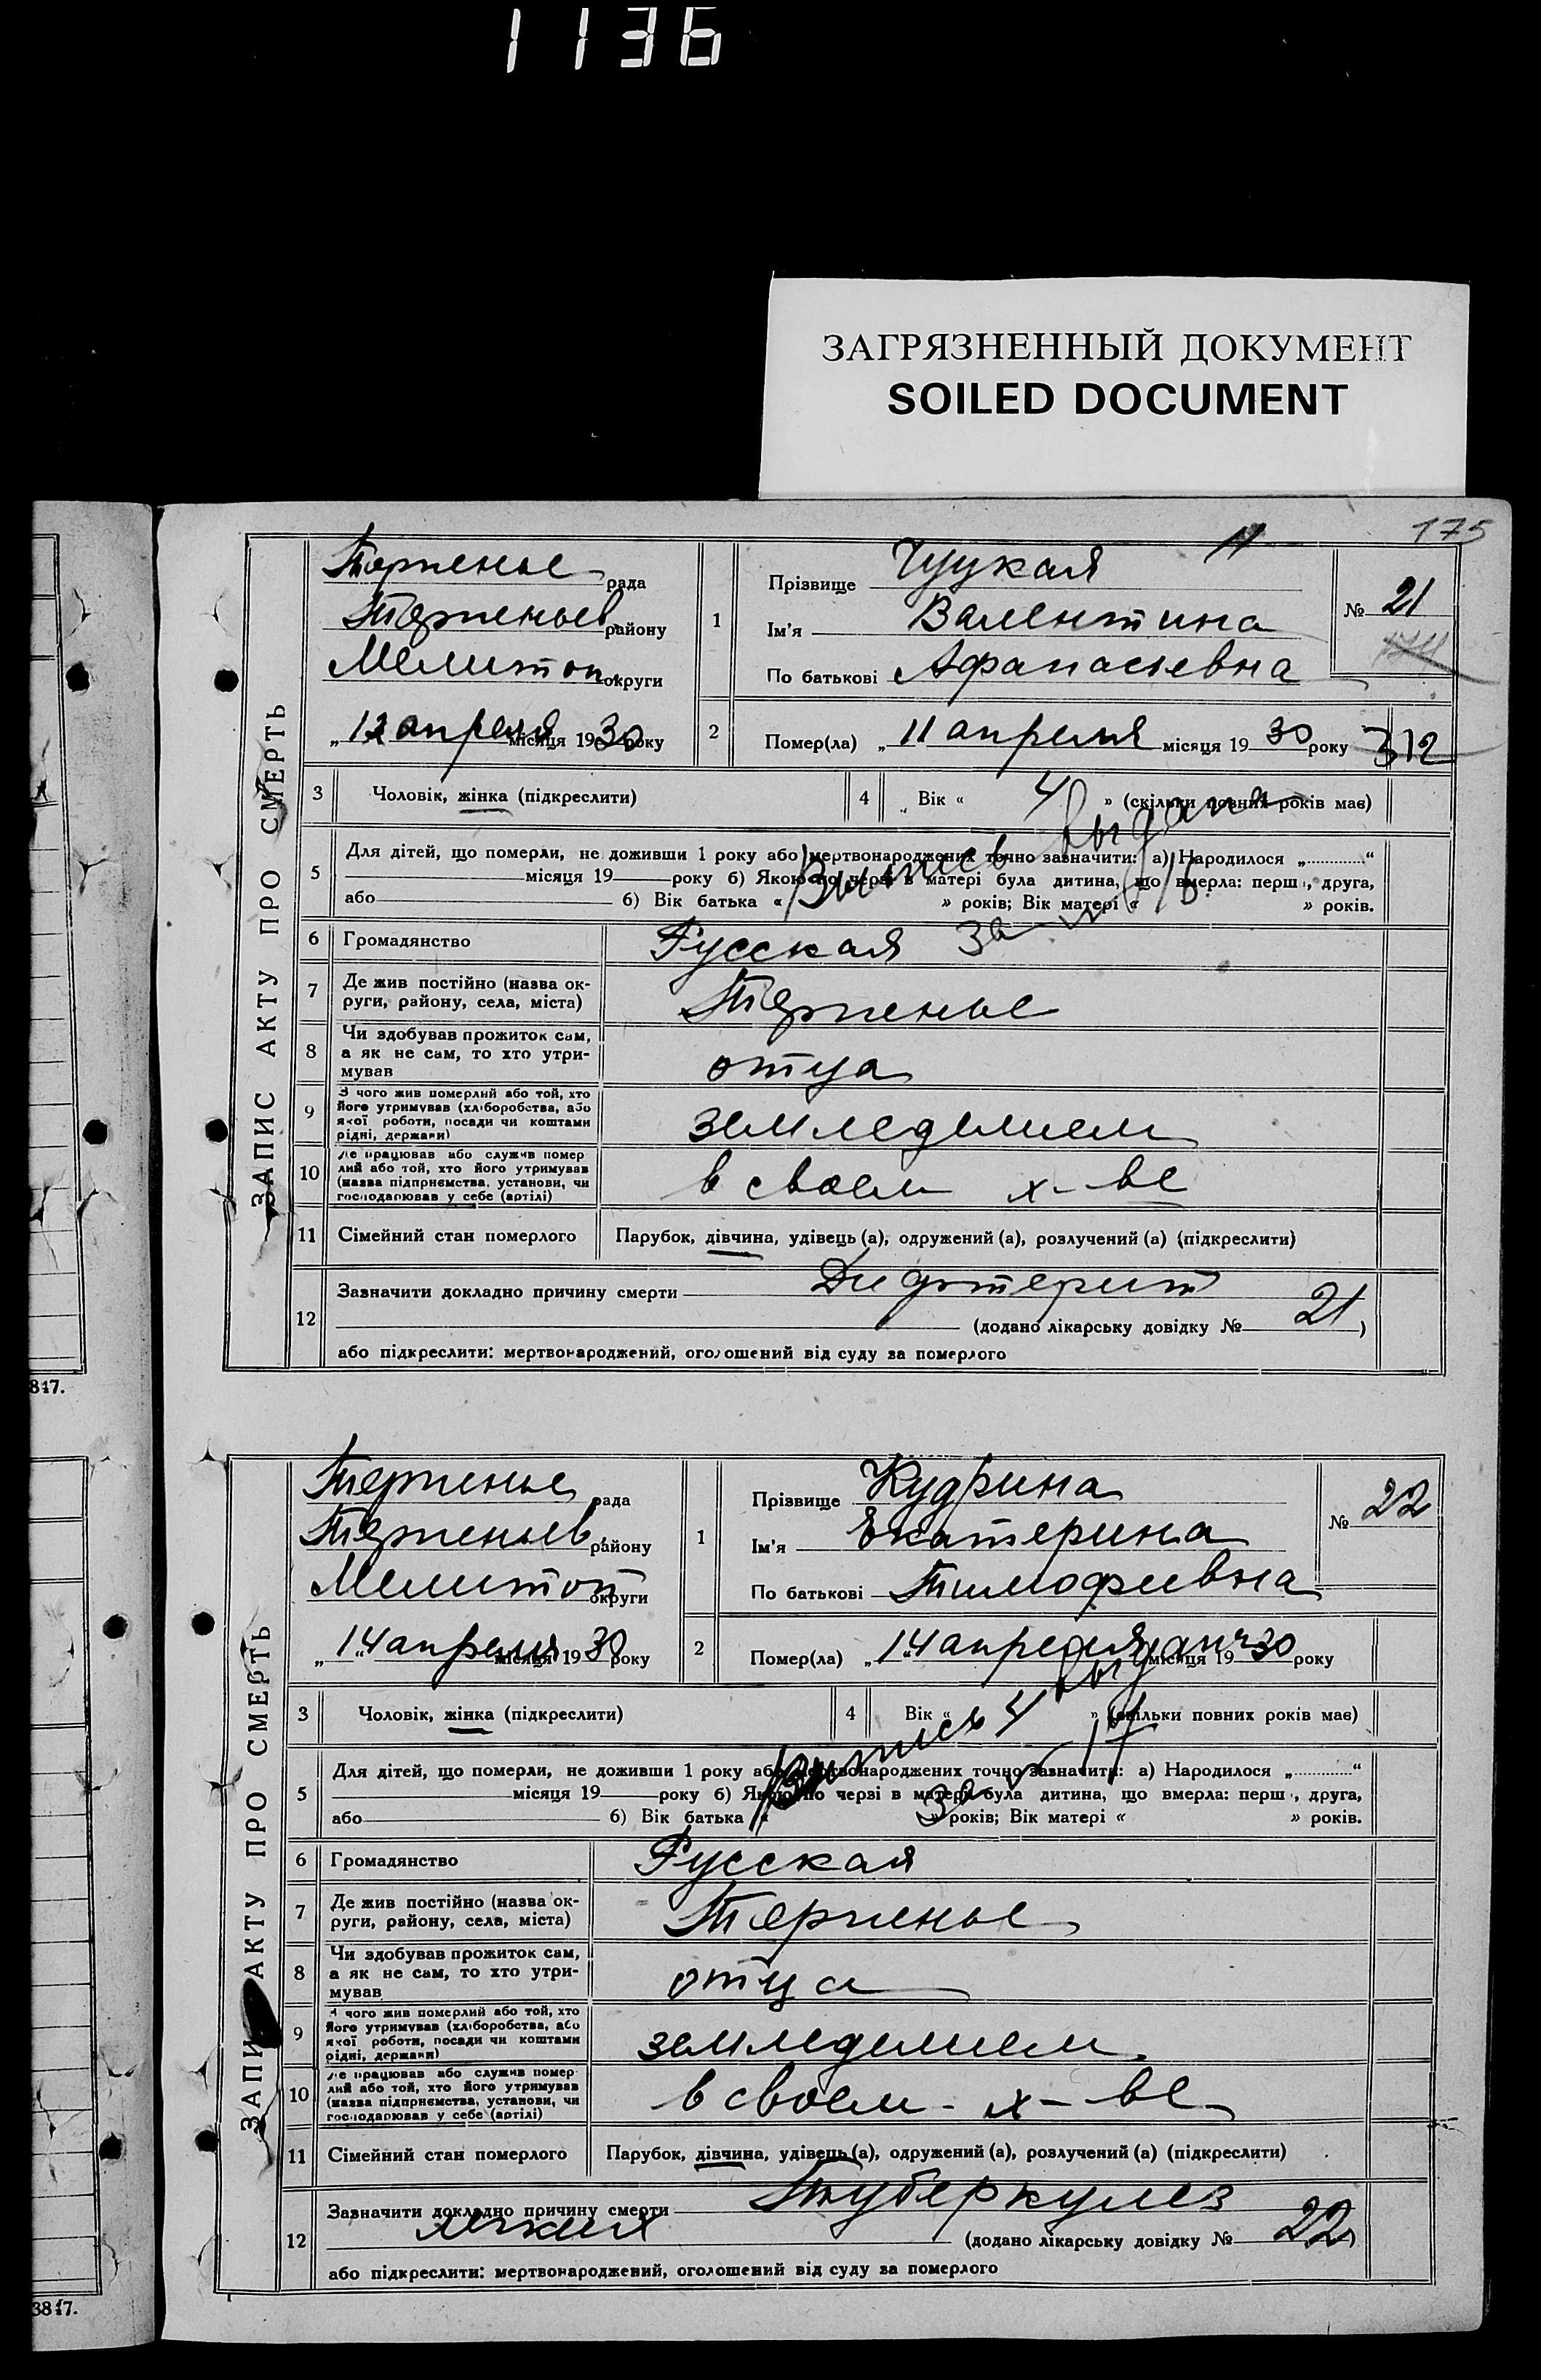 1136
ЗАГРЯЗНЕННЫЙ ДОКУМЕНТ
SOILED DOCUMENT
175
ЗАПИС АКТУ ПРО СМЕРТЬ
Терпенье рада
Терпеньев району
Мелитоп округи
„ 12 апреля місяця 1930 року
1
Прізвище Чуцкая
Ім'я Валентина
По батькові Афанасьевна
№ 21
174
2
Помер(ла) „ 11 апреля місяця 19 30 року
312
3 Чоловік, жінка (підкреслити)
4 Вік « 4 » (скільки повних років має)
5 Для дітей, що померли, не доживши 1 року або мертвонароджених точно зазначити: а) Народилося „ “
місяця 19 року б) Якою по черзі в матері була дитина, що вмерла: перша, друга,
або б) Вік батька « » років; Вік матері « » років.
Выпись выдана
за № 16
6 Громадянство Русская
7 Де жив постійно (назва ок-
руги, району, села, міста) Терпенье
8 Чи здобував прожиток сам,
а як не сам, то хто утри-
мував отца
9 З чого жив померлий або той, хто
його утримував (хліборобства, або
якої роботи, посади чи коштами
рідні, держави) земледелием
10 Де працював або служив помер
лий або той, хто його утримував
(назва підприємства, установи, чи
господарював у себе (артілі) в своем х-ве
11 Сімейний стан померлого Парубок, дівчина, удівець (а), одружений (а), розлучений (а) (підкреслити)
12 Зазначити докладно причину смерти Дифтерит
(додано лікарську довідку № 21)
або підкреслити: мертвонароджений, оголошений від суду за померлого
847.
ЗАПИ АКТУ ПРО СМЕРТЬ
Терпенье рада
Терпеньев району
Мелитоп округи
„ 14 апреля місяця 1930 року
1
Прізвище Кудрина
Ім'я Екатерина
По батькові Тимофеевна
№ 22
2
Помер(ла) „ 14 апреля місяця 19 30 року
3 Чоловік, жінка (підкреслити)
4 Вік « 4 » (скільки повних років має)
5 Для дітей, що померли, не доживши 1 року або мертвонароджених точно зазначити: а) Народилося „ “
місяця 19 року б) Якою по черзі в матері була дитина, що вмерла: перш , друга,
або б) Вік батька « » років; Вік матері « » років.
Выпись выдана
за № 17
6 Громадянство Русская
7 Де жив постійно (назва ок-
руги, району, села, міста) Терпенье
8 Чи здобував прожиток сам,
а як не сам, то хто утри-
мував отца
9 З чого жив померлий або той, хто
його утримував (хліборобства, або
якої роботи, посади чи коштами
рідні, держави) земледелием
10 Де працював або служив помер
лий або той, хто його утримував
(назва підприємства, установи, чи
господарював у себе (артілі) в своем х-ве
11 Сімейний стан померлого Парубок, дівчина, удівець (а), одружений (а), розлучений (а) (підкреслити)
12 Зазначити докладно причину смерти Туберкулез
легких (додано лікарську довідку № 22)
або підкреслити: мертвонароджений, оголошений від суду за померлого
3847.